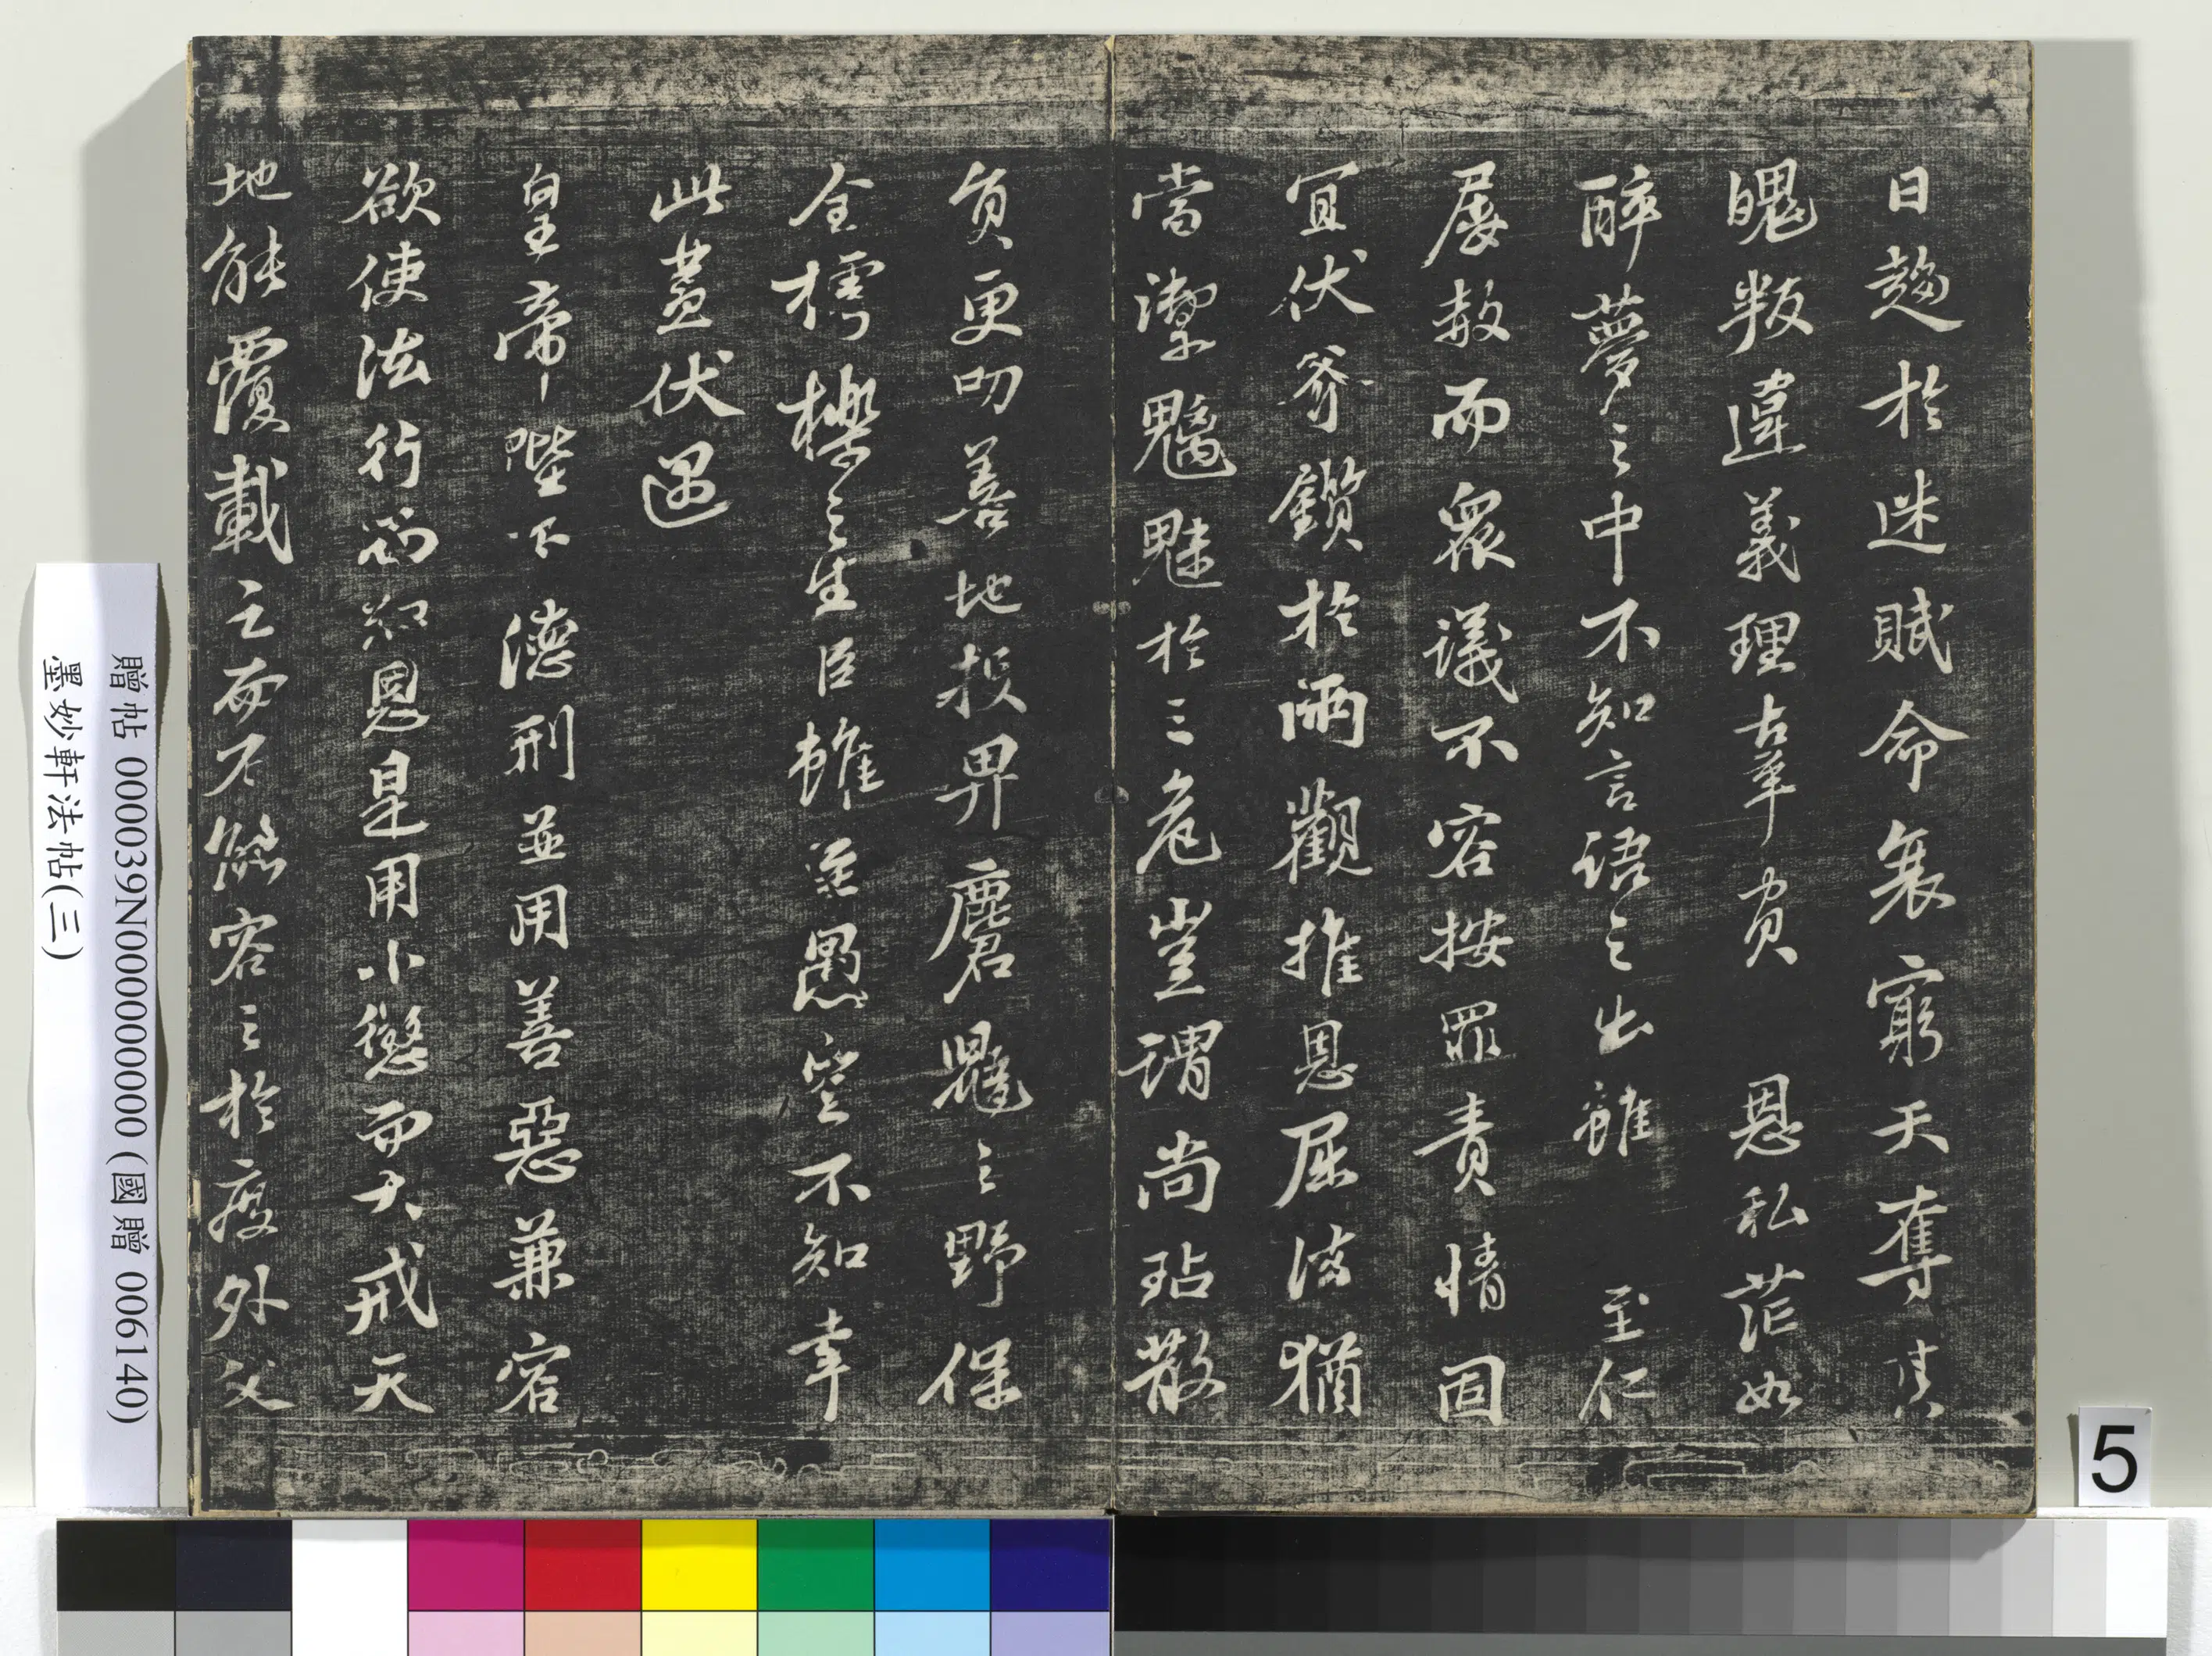 日趨於迷賦命衰窮天奪其
魄叛違義理辜負 恩私茫如
醉夢之中不知言語之出雖 至仁
屢赦而眾議不容按罪責情固
宜伏斧鑕於兩觀推恩屈法猶
當禦魑魅於三危豈謂尚玷散
員更叨善地投畀麏鼯之野保
全樗櫟之生臣雖至愚豈不知幸
此蓋伏遇
皇帝陛下德刑並用善惡兼容
欲使法行而知恩是用小懲而大戒天
地能覆載之而不能容之於度外父
贈帖 000039N000000000 (國贈 006140)
墨妙軒法帖(三)
5